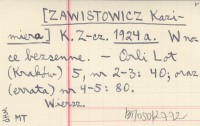 [ZAWISTOWICZ Kazi-
miera] K. Z-cz. 1924 a. W no
ce bezsenne. — Orli Lot
(Kraków) 5, nr 2-3: 40; oraz
(errata) nr 4-5: 80.
Wiersz.
MT